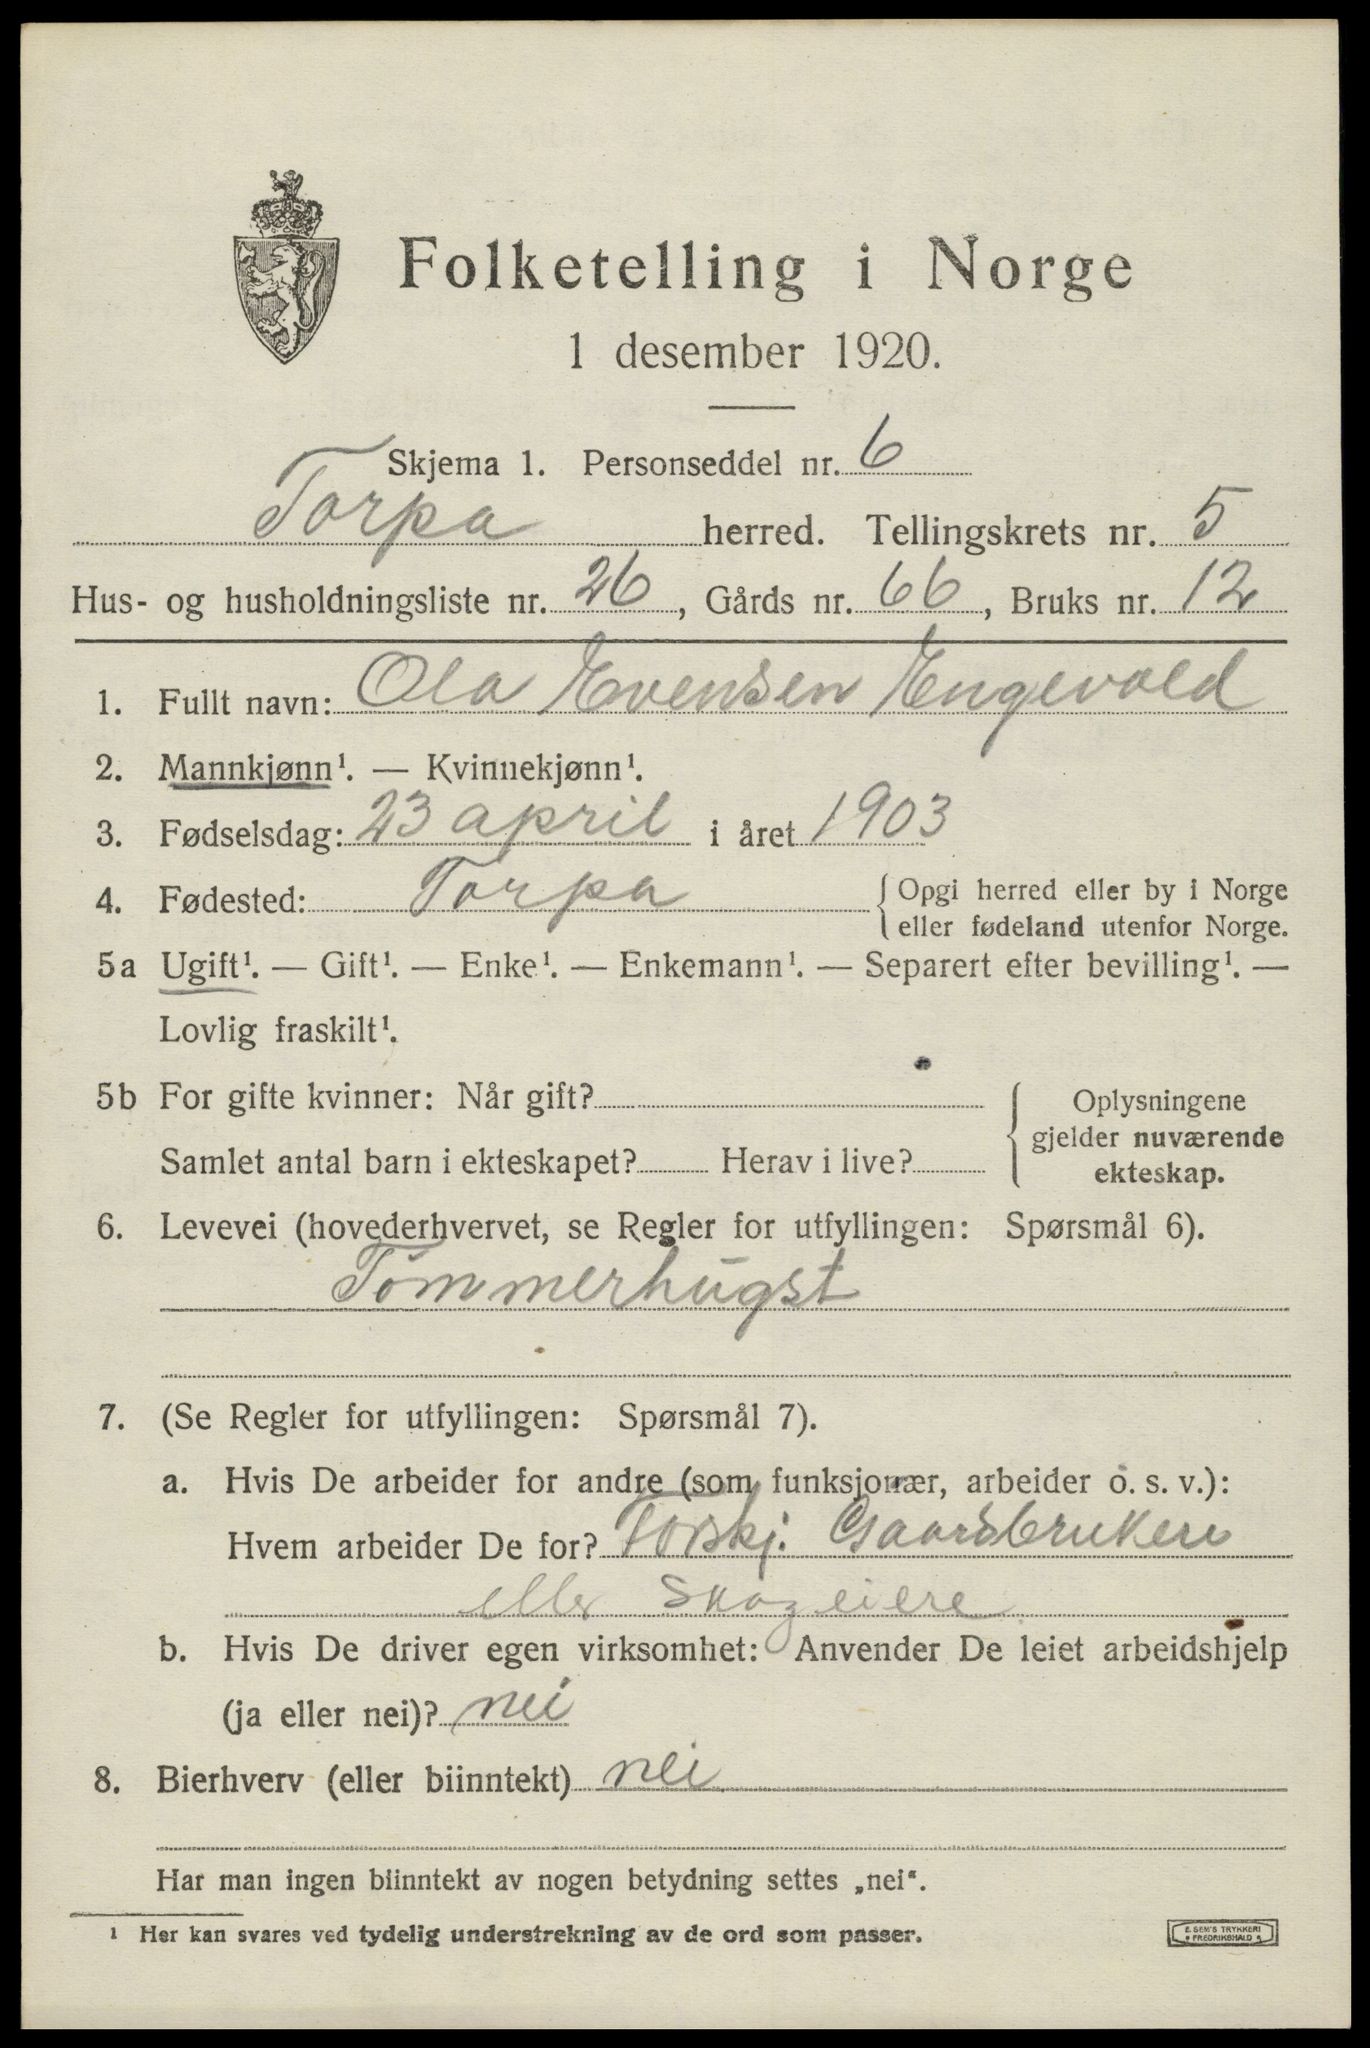 Folketelling i Norge
1 desember 1920.
Skjema 1. Personseddel nr. 6
Torpa herred. Tellingskrets nr. 5
Hus- og husholdningsliste nr. 26, Gårds nr. 66, Bruks nr. 12
1. Fullt navn: Ola Evensen Engevold
2. Mannkjønn¹. — Kvinnekjønn¹.
3. Fødselsdag: 23 april i året 1903
4. Fødested: Torpa { Opgi herred eller by i Norge
eller fødeland utenfor Norge.
5a Ugift¹. — Gift¹. — Enke¹. — Enkemann¹. — Separert efter bevilling¹. —
Lovlig fraskilt¹.
5b For gifte kvinner: Når gift?
Samlet antal barn i ekteskapet? Herav i live?
{ Oplysningene
gjelder nuværende
ekteskap.
6. Levevei (hovederhvervet, se Regler for utfyllingen: Spørsmål 6).
Tømmerhugst
7. (Se Regler for utfyllingen: Spørsmål 7).
a. Hvis De arbeider for andre (som funksjonær, arbeider o. s. v.):
Hvem arbeider De for? Forskj. Gaardbrukere
eller Skogeiere
b. Hvis De driver egen virksomhet: Anvender De leiet arbeidshjelp
(ja eller nei)? nei
8. Bierhverv (eller biinntekt) nei
Har man ingen biinntekt av nogen betydning settes „nei“.
¹ Her kan svares ved tydelig understrekning av de ord som passer.
E. SEM'S TRYKKERI
FREDRIKSHALD